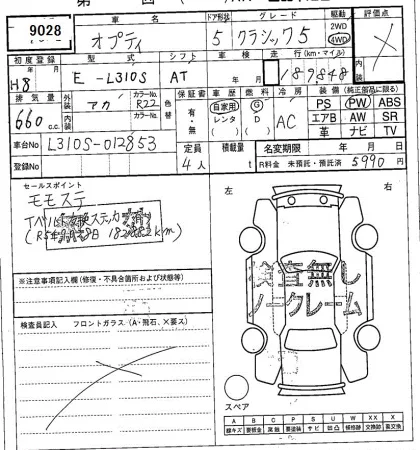 9028
車名
オプティ
ドア形状
5
グレード
クラシック5
駆動
2WD
4WD
評価点
初度登録
H8
年
月
型式
E-L310S
シフト
AT
車検
年 月
走行(km・マイル)
189848
車内
排気量
660 c.c.
外装
アカ
内装
カラーNo.
R22
カラーNo.
色替
保証書
有・無
車歴
自家用
レンタ
燃料
G
D
冷房
AC
装備(純正部品に限る)
PS PW ABS
エアB AW SR
革 ナビ TV
車台No
L310S-012853
登録No
定員
4人
積載量
t
登録 年 月 日
R料金 未預託・預託済 5990 円
セールスポイント
モモステ
Tベルト交換ステッカー有り
左 右
※注意事項記入欄(修復・不具合箇所および状態等)
検査無し
ノークレーム
検査員記入 フロントガラス(A・飛石、×要ス)
スペア
A B C P S U W XX X
線キズ 要板金 腐蝕 要塗装 サビ 凹凸 補修跡 交換跡 要交換